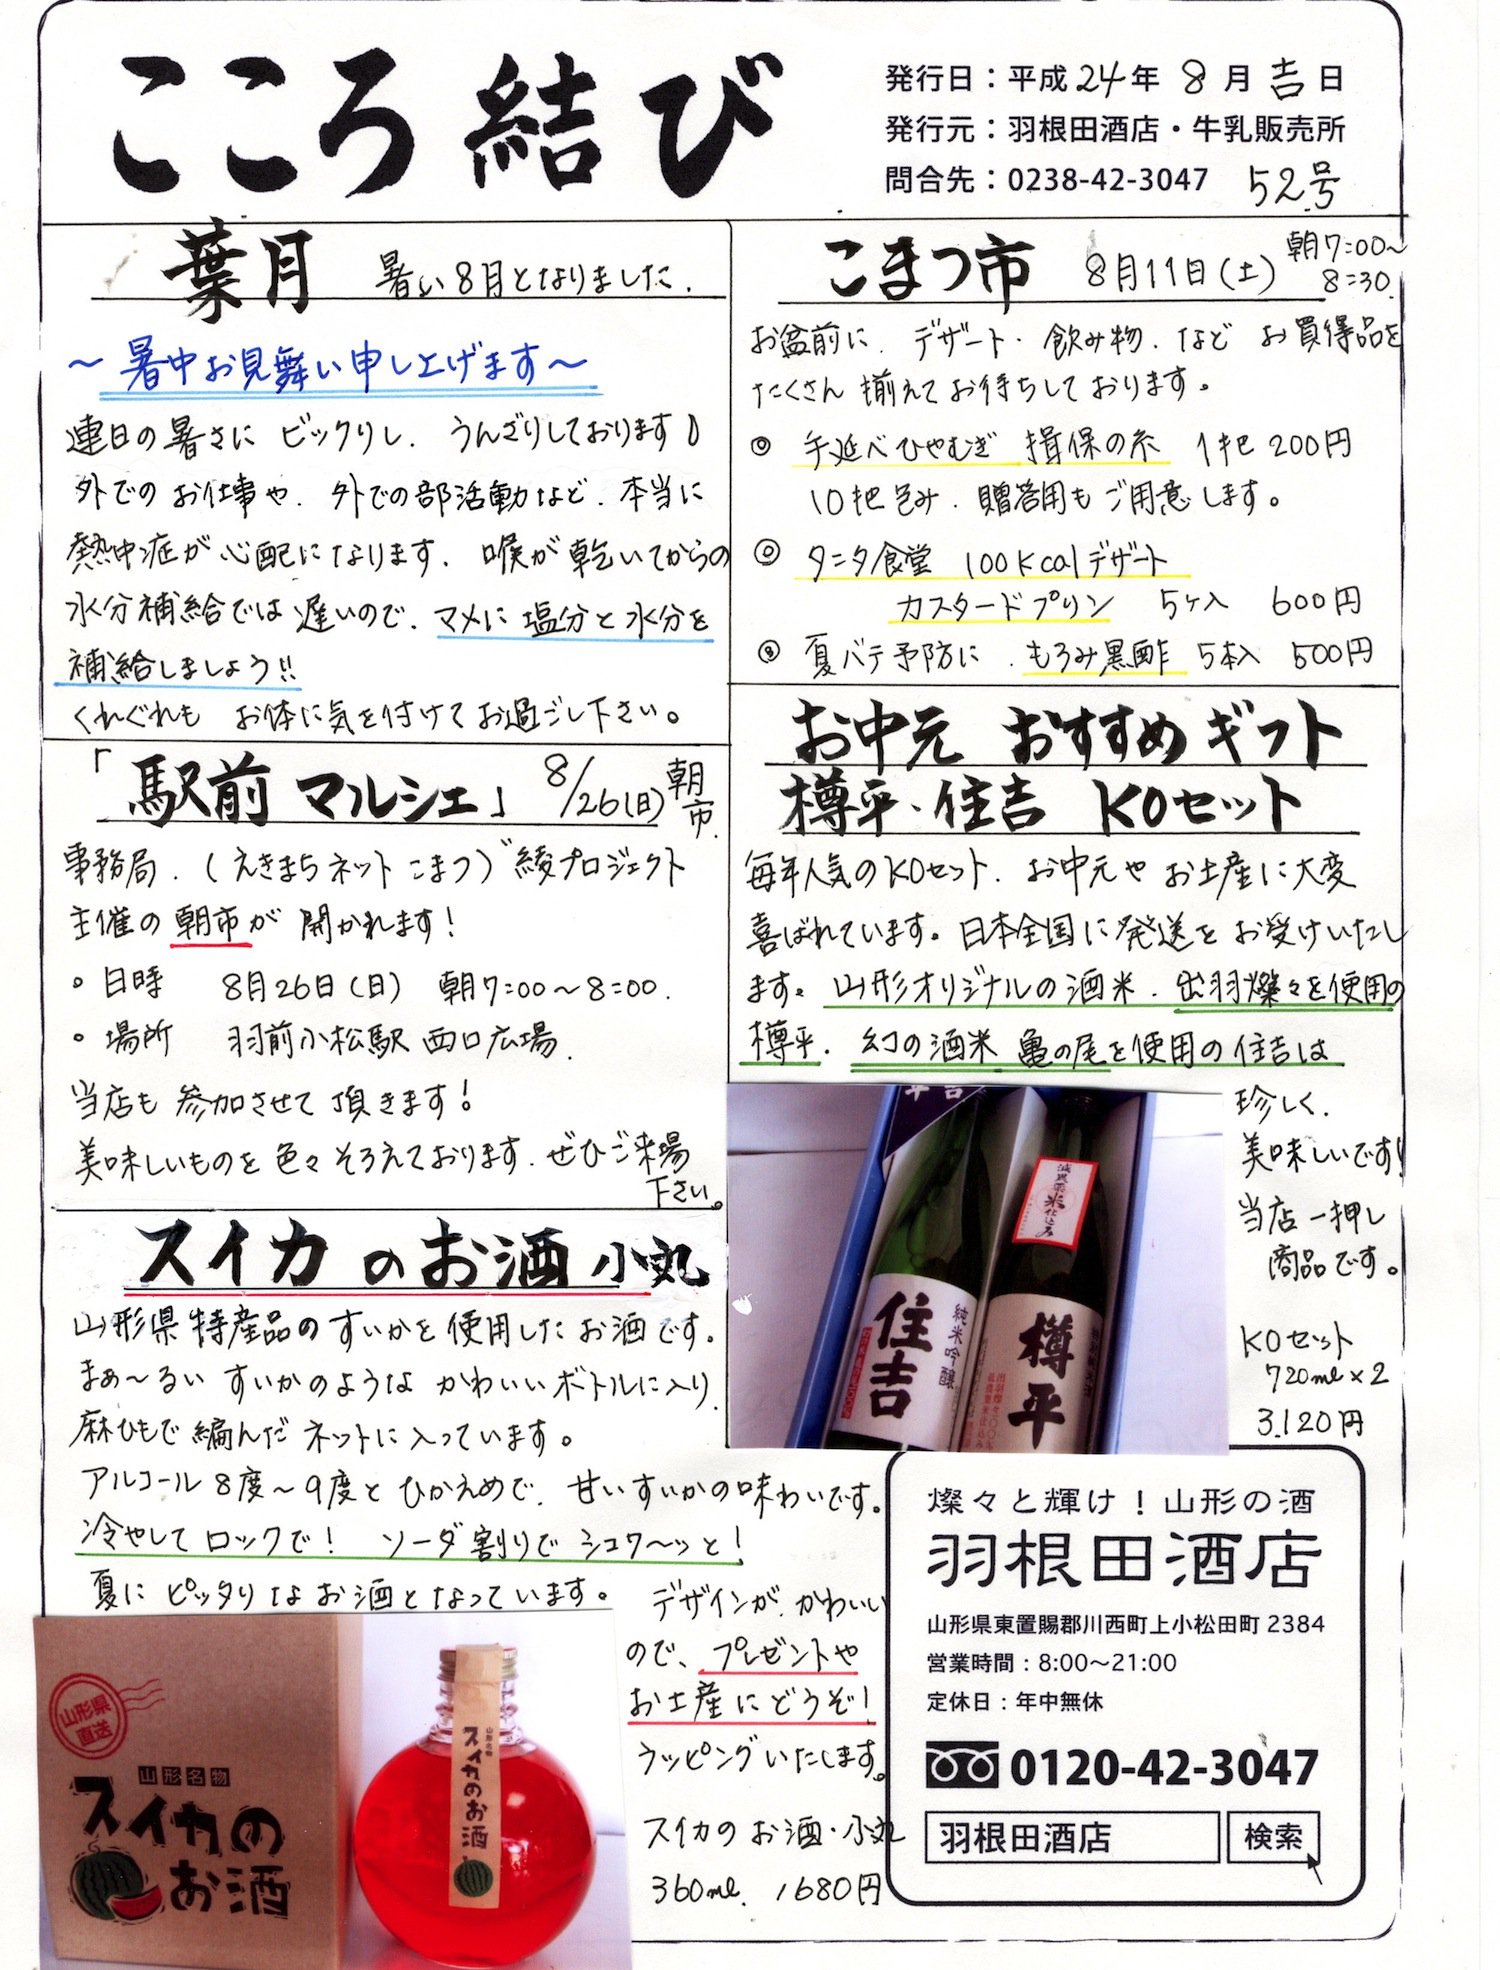 こころ結び
発行日：平成24年8月吉日
発行元：羽根田酒店・牛乳販売所
問合先：0238-42-3047 52号
葉月 暑い8月となりました.
～暑中お見舞い申し上げます～
連日の暑さに ビックリし. うんざりしております
外でのお仕事や. 外での部活動など. 本当に
熱中症が心配になります. 喉が乾いてからの
水分補給では遅いので. マメに塩分と水分を
補給しましょう!!
くれぐれも お体に気を付けてお過ごし下さい。
「駅前マルシェ」 8/26(日) 朝市.
事務局. (えきまちネットこまつ)"綾プロジェクト
主催の朝市が開かれます!
○ 日時 8月26日(日) 朝7:00～8:00.
○ 場所 羽前小松駅 西口広場.
当店も参加させて頂きます!
美味しいものを色々そろえております. ぜひご来場
下さい。
スイカのお酒 小丸
山形県特産品のすいかを使用したお酒です。
まぁ～るい すいかのような かわいいボトルに入り
麻ひもで編んだネットに入っています。
アルコール8度～9度とひかえめで. 甘いすいかの味わいです。
冷やしてロックで! ソーダ割りでシュワ～ッと!
夏にピッタリなお酒となっています。
デザインが、かわいい
ので、プレゼントや
お土産にどうぞ!
ラッピングいたします。
スイカのお酒・小丸
360ml. 1680円
山形県
直送
山形名物
スイカの
お酒
山形名物
スイカのお酒
こまつ市 8月11日(土) 朝7:00～
8:30.
お盆前に. デザート・飲み物. など お買得品を
たくさん揃えてお待ちしております。
◎ 手延べひやむぎ 揖保の糸 1把 200円
10把包み. 贈答用もご用意します。
◎ タニタ食堂 100Kcalデザート
カスタードプリン 5ヶ入 600円
◎ 夏バテ予防に. もろみ黒酢 5本入 500円
お中元 おすすめギフト
樽平・住吉 KOセット
毎年人気のKOセット. お中元やお土産に大変
喜ばれています。日本全国に発送をお受けいたし
ます。山形オリジナルの酒米. 出羽燦々を使用の
樽平. 幻の酒米 亀の尾を使用の住吉は
珍しく.
美味しいです!
当店一押し
商品です。
KOセット
720ml×2
3,120円
純米吟醸
住吉
樽平
燦々と輝け！山形の酒
羽根田酒店
山形県東置賜郡川西町上小松田町2384
営業時間：8:00～21:00
定休日：年中無休
0120-42-3047
羽根田酒店 検索